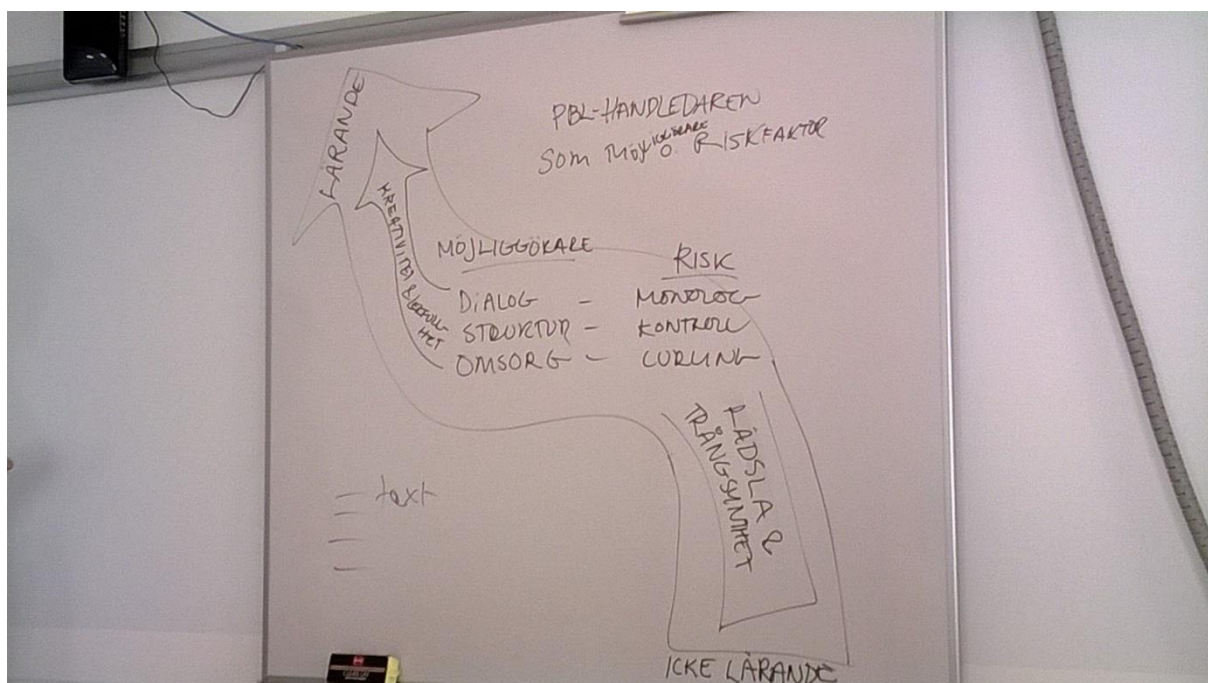 LÄRANDE
PBL-HANDLEDAREN
SOM MÖJLIGGÖRARE O. RISKFAKTOR
KREATIVITET & LEKFULL-
HET
MÖJLIGGÖRARE
RISK
DIALOG - MONOLOG
STRUKTUR - KONTROLL
OMSORG - CURLING
RÄDSLA &
TRÅNGSYNTHET
- text
ICKE LÄRANDE